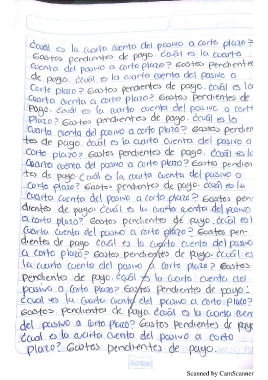 ¿Cuál es la cuarta cuenta del pasivo a corto plazo?
Gastos pendientes de pago. ¿Cuál es la cuarta
cuenta del pasivo a corto plazo? Gastos pendientes
de pago. ¿Cuál es la cuarta cuenta del pasivo a
corto plazo? Gastos pendientes de pago. ¿Cuál es la
cuarta cuenta a corto plazo? Gastos pendientes de
pago. ¿Cuál es la cuarta cuenta del pasivo a corto
plazo? Gastos pendientes de pago. ¿Cuál es la
cuarta cuenta del pasivo a corto plazo? Gastos pendien
tes de pago. ¿Cuál es la cuarta cuenta del pasivo a
corto plazo? Gastos pendientes de pago. ¿Cuál es la
cuarta cuenta del pasivo a corto plazo? Gastos pendien
tes de pago. ¿Cuál es la cuarta cuenta del pasivo a
corto plazo? Gastos pendientes de pago. ¿Cuál es la
cuarta cuenta del pasivo a corto plazo? Gastos pen-
dientes de pago. ¿Cuál es la cuarta cuenta del pasivo
a corto plazo? Gastos pendientes de pago. ¿Cuál es l
cuarta cuenta del pasivo a corto plazo? Gastos pen-
dientes de pago. ¿Cuál es la cuarta cuenta del pasivo
a corto plazo? Gastos pendientes de pago. ¿Cuál es
la cuarta cuenta del pasivo a corto plazo? Gastos
pendientes de pago. ¿Cuál es la cuarta cuenta del
pasivo a corto plazo? Gastos pendientes de pago.
¿Cuál es la cuarta cuenta del pasivo a corto plazo?
Gastos pendientes de pago. ¿Cuál es la cuarta cuen
del pasivo a corto plazo? Gastos pendientes de pago
¿Cuál es la cuarta cuenta del pasivo a corto
plazo? Gastos pendientes de pago.
Scribe
Scanned by CamScanner